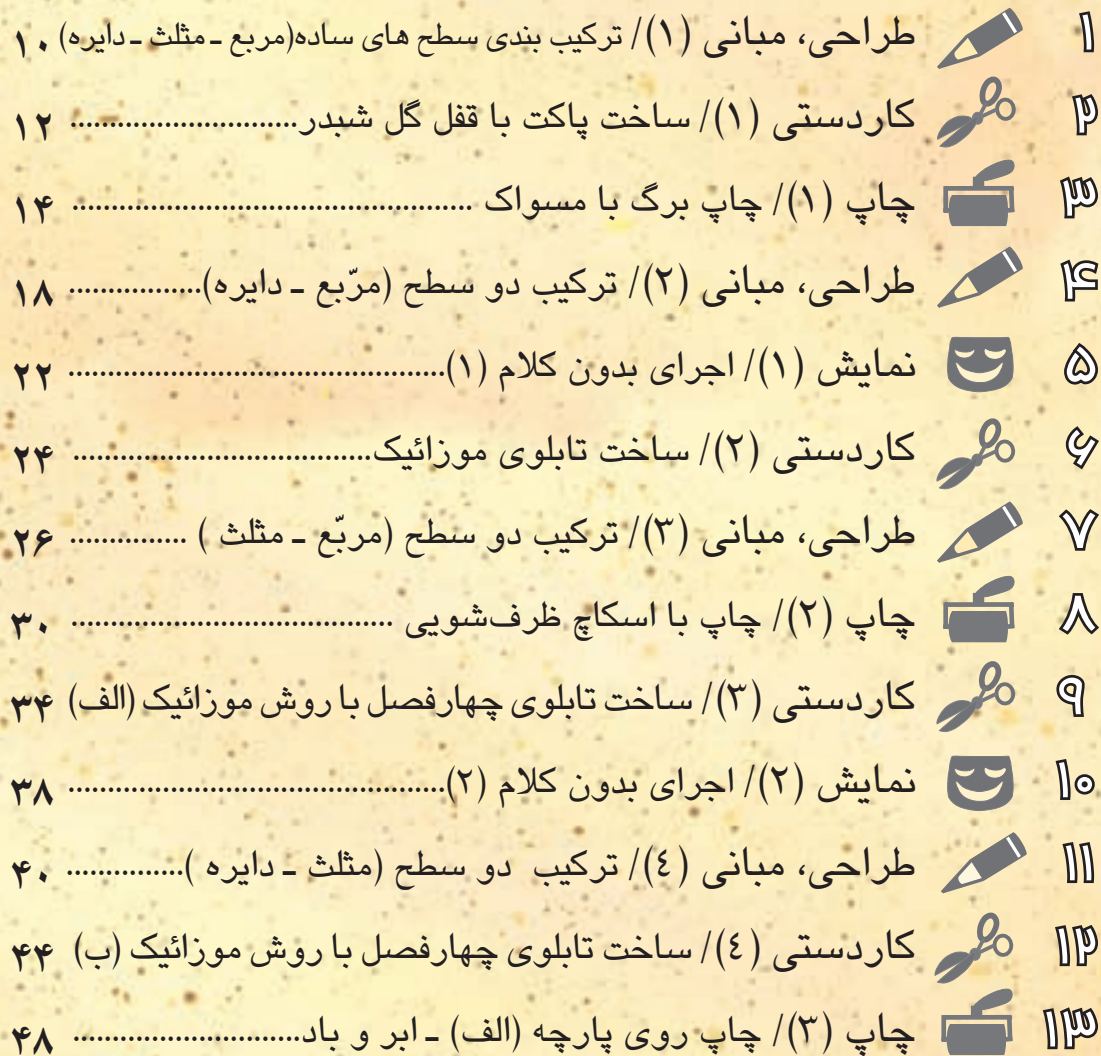 ۱ طراحی، مبانی (۱)/ ترکیب بندی سطح های ساده(مربع ـ مثلث ـ دایره) ۱۰
۲ کاردستی (۱)/ ساخت پاکت با قفل گل شبدر............................ ۱۲
۳ چاپ (۱)/ چاپ برگ با مسواک .................................................. ۱۴
۴ طراحی، مبانی (۲)/ ترکیب دو سطح (مربّع ـ دایره)................ ۱۸
۵ نمایش (۱)/ اجرای بدون کلام (۱)............................................... ۲۲
۶ کاردستی (۲)/ ساخت تابلوی موزائیک..................................... ۲۴
۷ طراحی، مبانی (۳)/ ترکیب دو سطح (مربّع ـ مثلث ) ............... ۲۶
۸ چاپ (۲)/ چاپ با اسکاچ ظرف‌شویی ........................................ ۳۰
۹ کاردستی (۳)/ ساخت تابلوی چهارفصل با روش موزائیک (الف) ۳۴
۱۰ نمایش (۲)/ اجرای بدون کلام (۲)............................................... ۳۸
۱۱ طراحی، مبانی (٤)/ ترکیب دو سطح (مثلث ـ دایره )............... ۴۰
۱۲ کاردستی (٤)/ ساخت تابلوی چهارفصل با روش موزائیک (ب) ۴۴
۱۳ چاپ (۳)/ چاپ روی پارچه (الف) ـ ابر و باد............................ ۴۸